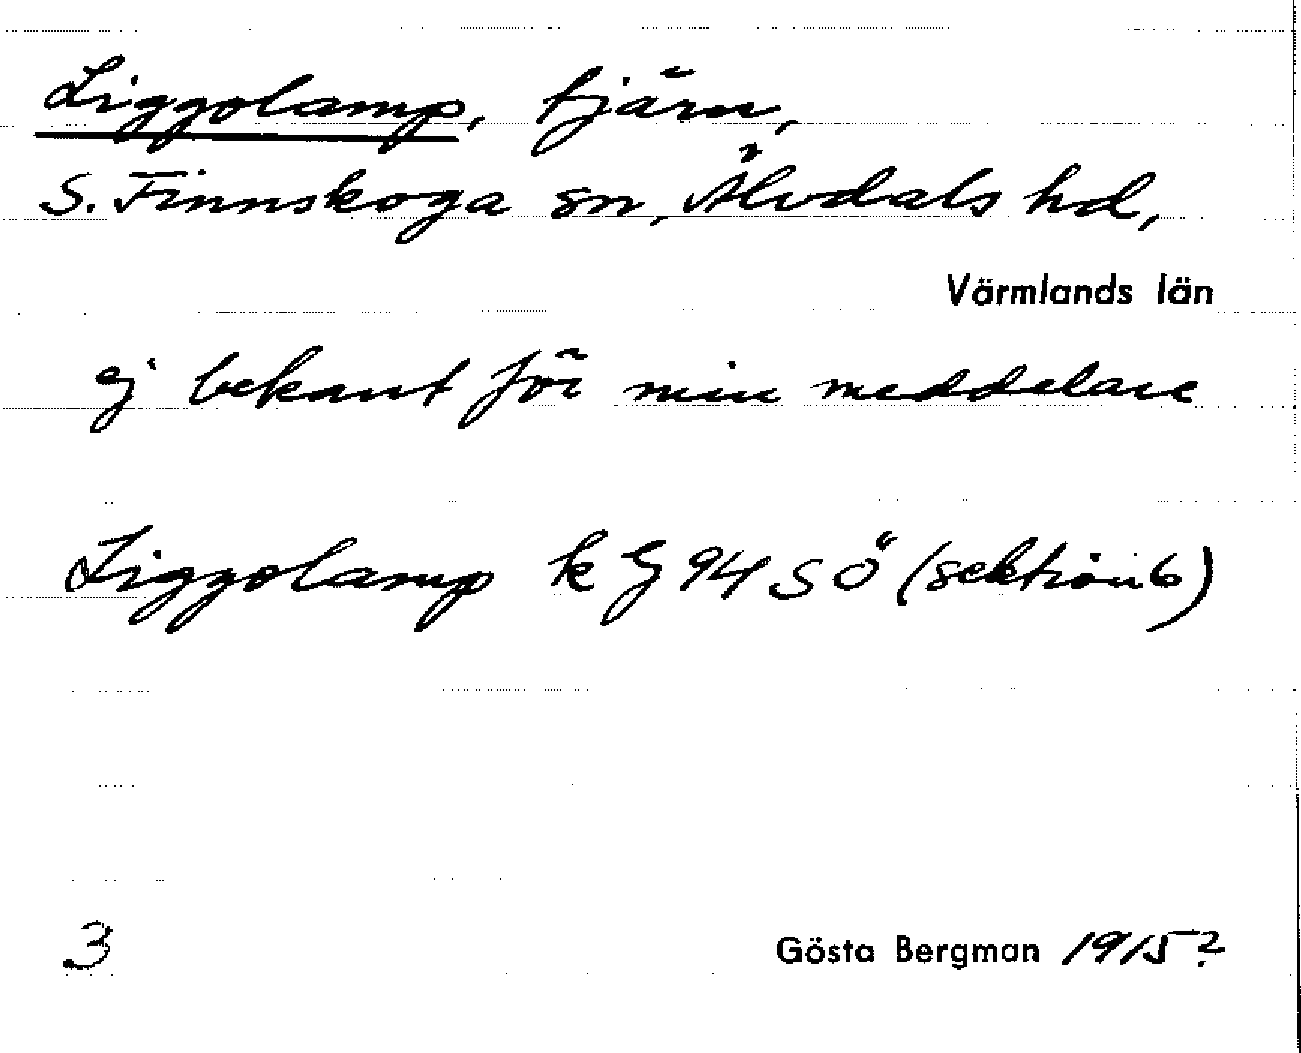 Liggolamp, tjärn,
S. Finnskoga sn, Älvdals hd,
Värmlands län
ej bekant för min meddelare
Liggolamp k G 94 SÖ (sektion 6)
3 Gösta Bergman 1915?